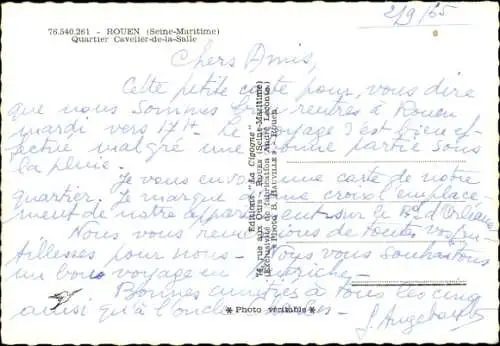 76.540.261 - ROUEN (Seine-Maritime)
Quartier Cavelier-de-la-Salle
2/9/65
Chers Amis,
Cette petite carte pour vous dire
que nous sommes bien rentrés à Rouen
mardi vers 17h. Le voyage s'est bien ef-
fectué malgré une bonne partie sous
la pluie.
Je vous envoie une carte de notre
quartier. Je marque une croix l'emplace
ment de notre appartement sur le Bd d'Orléans
Nous vous remercions de toutes vos gen-
tillesses pour nous. Nous vous souhaitons
un bon voyage en Autriche.
Bonnes amitiés à tous les cinq
ainsi qu'à l'oncle
Editions "La Cigogne"
rue aux Ours - ROUEN (Seine-Maritime)
(Exclusivité de fabrication André Leconte)
Photo B. HAUVILLE - Rouen
* Photo véritable *